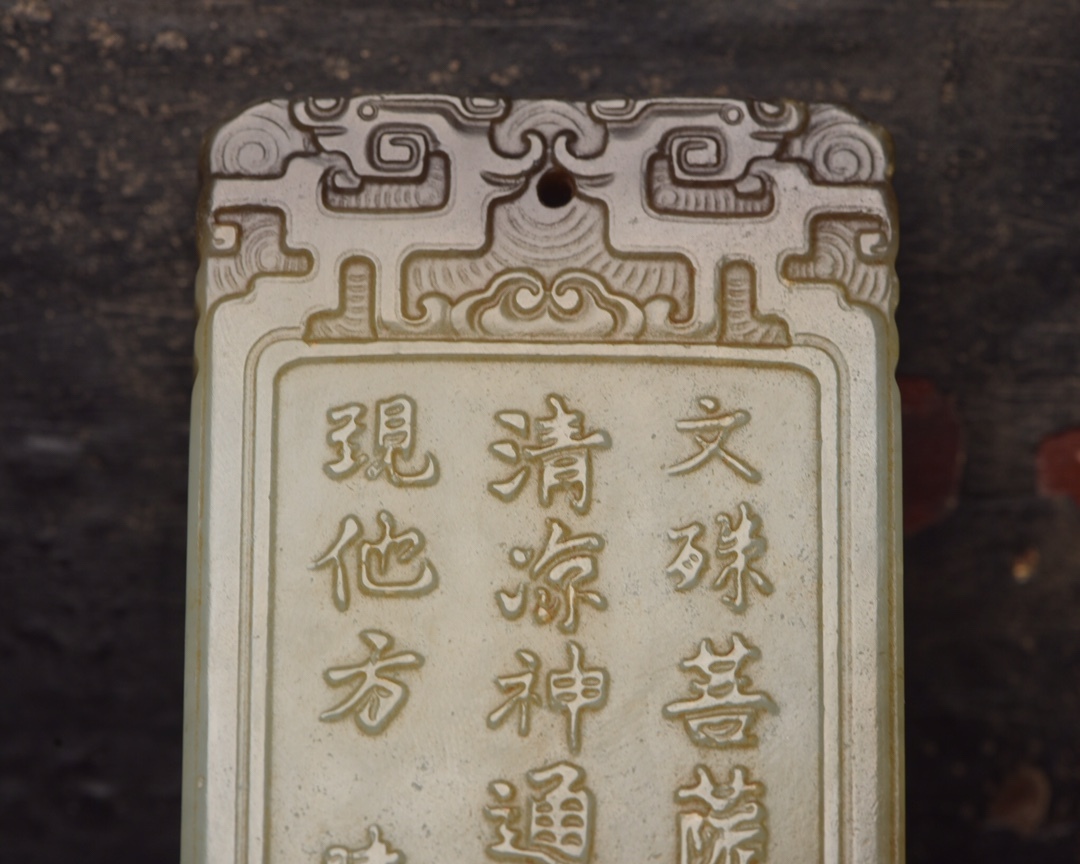 文殊菩薩
清涼神通
現他方